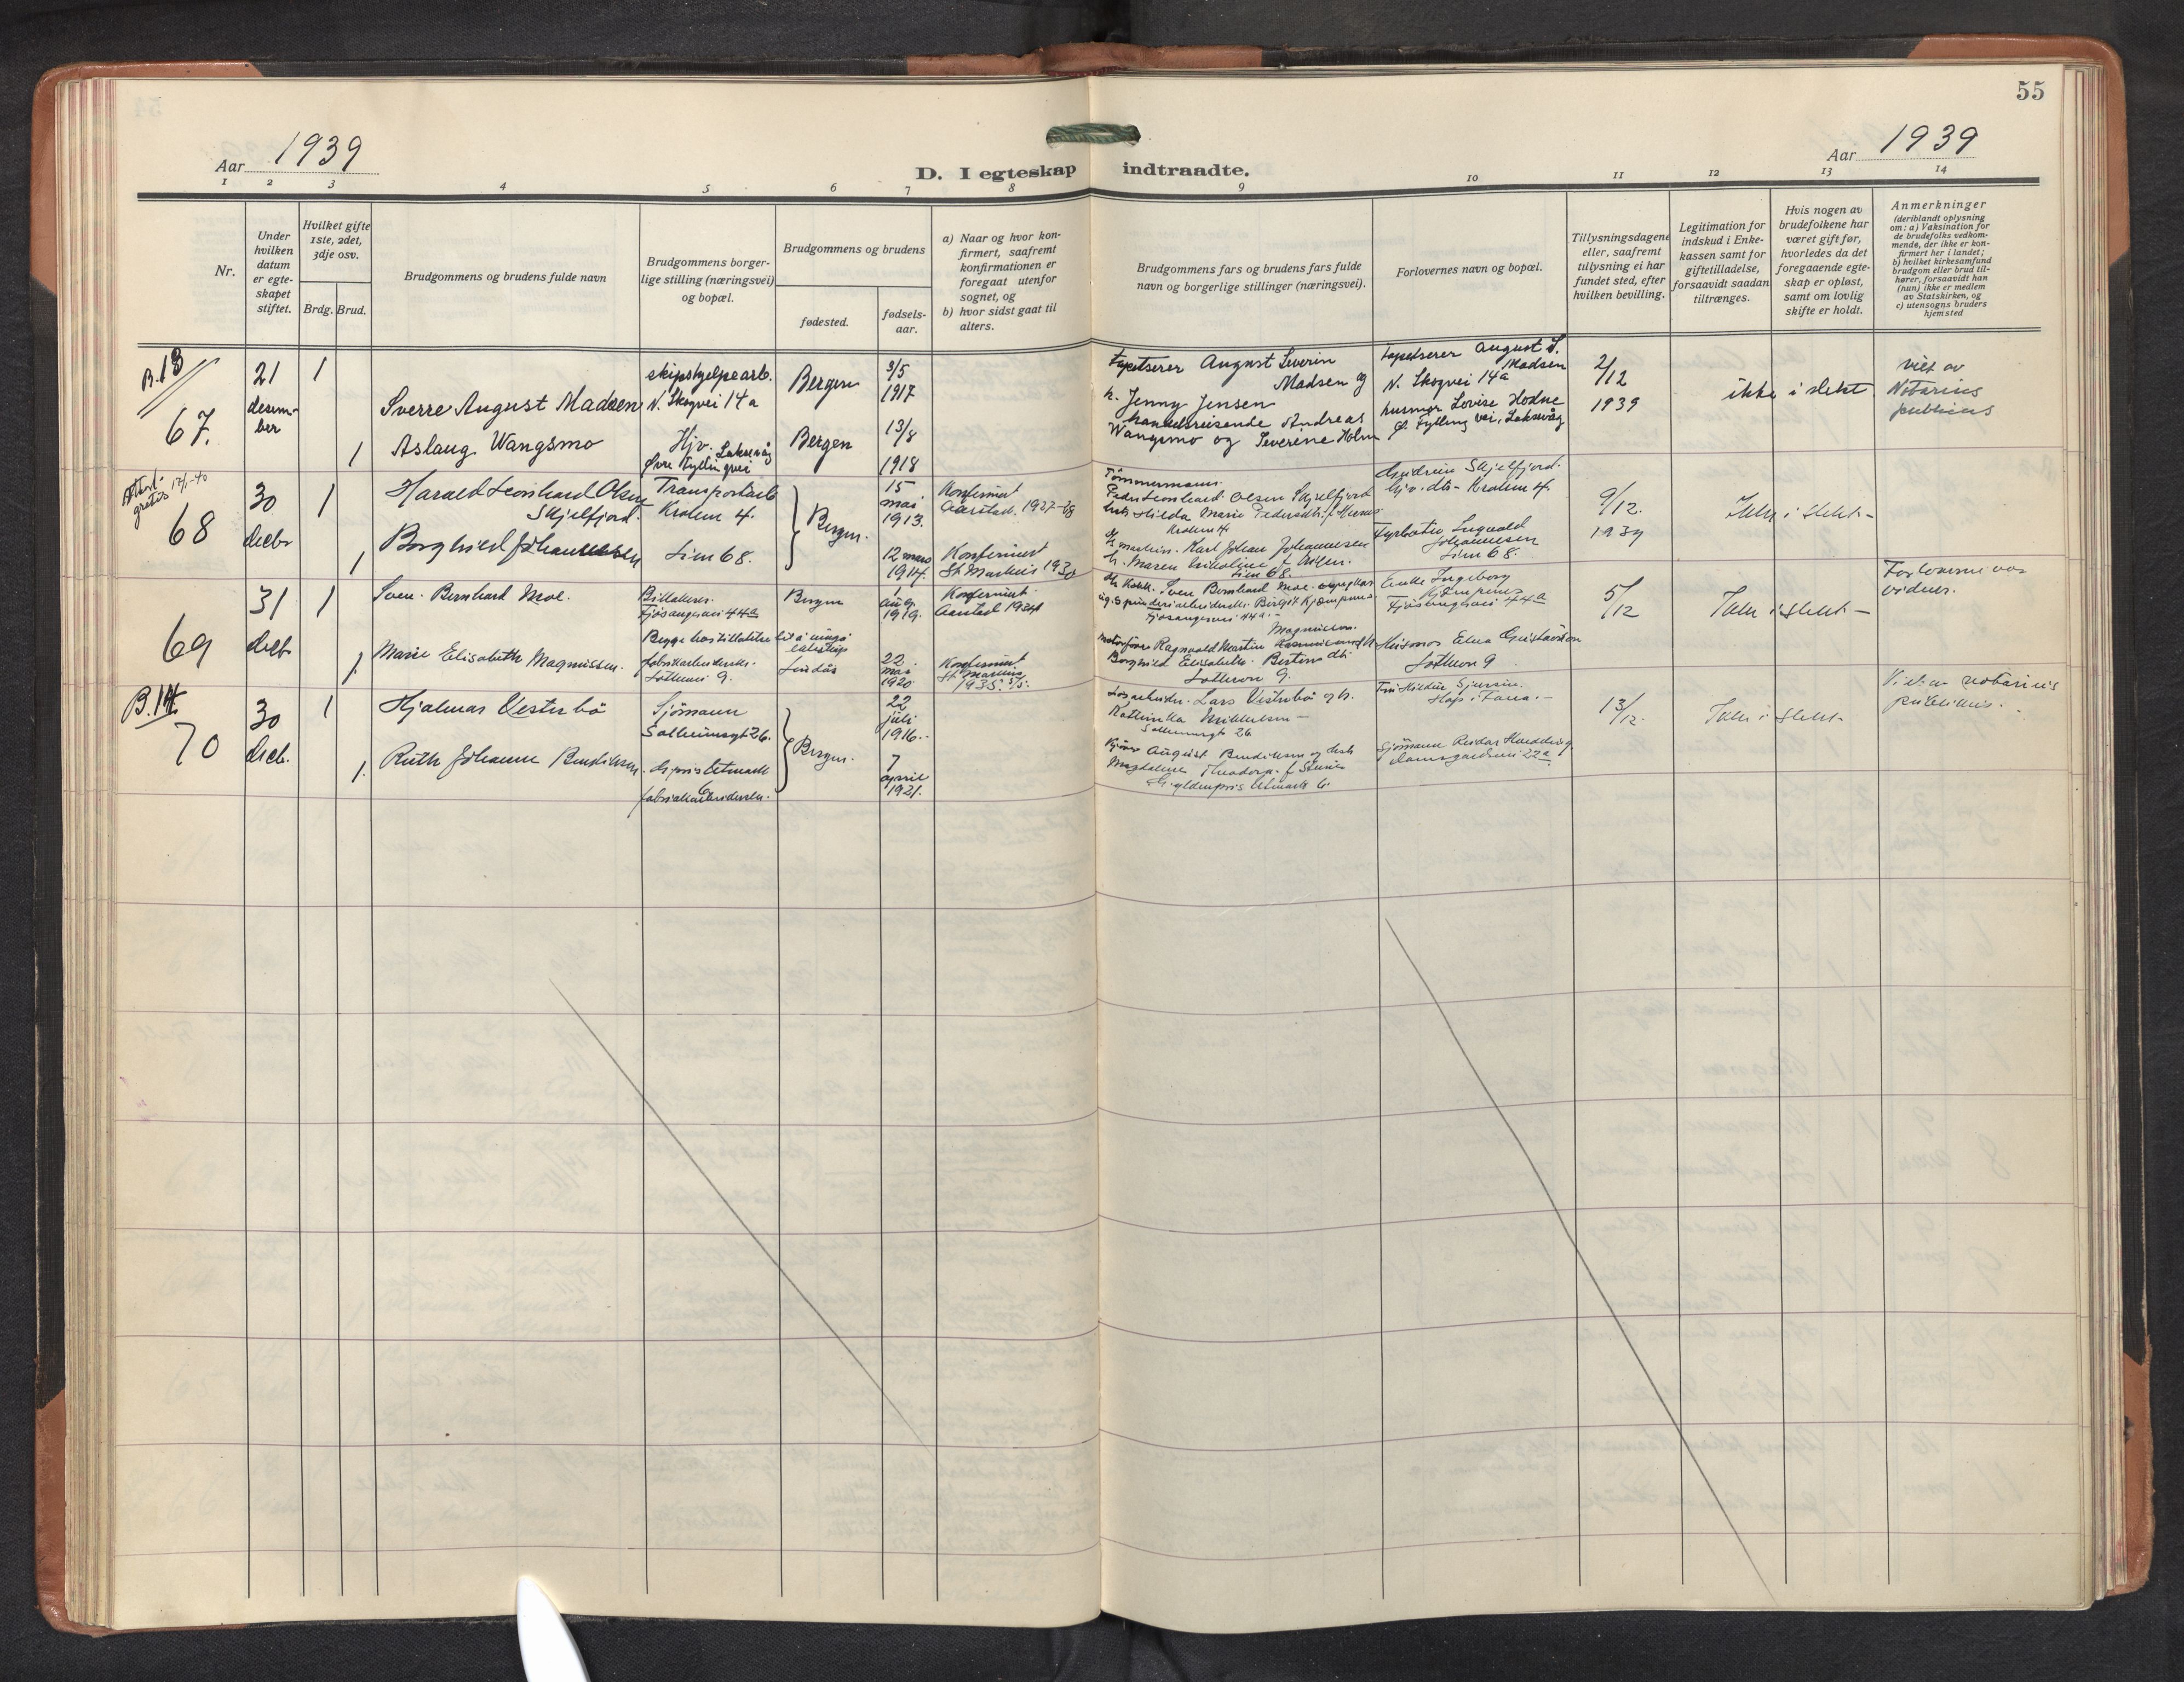 55
Aar 1939
Aar 1939
D. I egteskap indtraadte.
1 2 3 4 5 6 7 8 9 10 11 12 13 14
Nr.
Under hvilken datum er egteskapet stiftet.
Hvilket gifte 1ste, 2det, 3dje osv.
Brdg. Brud.
Brudgommens og brudens fulde navn
Brudgommens borgerlige stilling (næringsvei) og bopæl.
Brudgommens og brudens
fødested.
fødselsaar.
a) Naar og hvor konfirmert, saafremt konfirmationen er foregaat utenfor sognet, og
b) hvor sidst gaat til alters.
Brudgommens fars og brudens fars fulde navn og borgerlige stillinger (næringsvei).
Forlovernes navn og bopæl.
Tillysningsdagene eller, saafremt tillysning ei har fundet sted, efter hvilken bevilling.
Legitimation for indskud i Enkekassen samt for giftetilladelse, forsaavidt saadan tiltrænges.
Hvis nogen av brudefolkene har været gift før, hvorledes da det foregaaende egteskap er opløst, samt om lovlig skifte er holdt.
Anmerkninger
(deriblandt oplysning om: a) Vaksination for de brudefolks vedkommende, der ikke er konfirmert her i landet; b) hvilket kirkesamfund brudgom eller brud tilhører, forsaavidt han (hun) ikke er medlem av Statskirken, og c) utensogns bruders hjemsted
B.13
67.
21 desember
1
Sverre August Madsen
skipshjelpearb.
N. Skogvei 14a
Bergen
3/5 1917
tapetserer August Severin
Madsen og
h. Jenny Jensen
tapetserer August S.
Madsen
N. Skogvei 14a
2/12
1939
ikke i slekt
viet av
Notarius
publicus
1
Aslaug Wangsmo
Hjv. Laksevåg
Øvre Fyllingvei
Bergen
13/8
1918
handelsreisende Andreas
Wangsmo og Severine Holm
husmor Lovise Hodne
Ø. Fylling vei, Laksevåg
Attest-
gratis 17/1-40
68
30
decbr
1
Harald Leonhard Olsen
Skjelfjord.
Transportarb
Krohnv 4.
Bergen.
15
mai
1913.
Konfirmert
Aarstad. 1927-28
Tömmermann
Peder Leonhard Olsen Skjelfjord
Hilda Marie
Krohnv 4
Skjelfjord.
Krohnv 4.
9/12.
1939
Ikke i slekt-
1
Borghild Johannessen
Lien 68.
12 mars
1914.
Konfirmert
St. Markus 1930
Karl Johan Johannessen
h. Maren
Lien 68.
Fyrböter Ingvald
Johannessen
Lien 68.
69
31
decb
1
Sven Bernhard Moe.
Fjösangervei 44a
Bergen
1
Aug.
1919.
Konfirmert
Aarstad 1934
Sven Bernhard Moe.
Fjösangervei 44a.
Enke Ingeborg
Fjösangervei 44a
5/12
Ikke i slekt-
Forloverne var
vidner.
Begge has tillatelse til å inngå
ekteskap
1
Marie Elisabeth Magnussen.
fabrikkarbeiderske.
Lothevei 9.
Lindås
22
mai
1920
Konfirmert
St. Markus
1935.
Magnussen.
Ragnvald Martin
Borghild Elisabeth
Lothevn 9.
Husmor Elna Gustavson
Lothevn 9
B.14.
70
30
decb.
1
Hjalmar Vesterbö
Sjömann
Solheimsgt 26.
Bergen.
22
juli
1916.-
Lars Vesterbö og h.
Kathinka Mikkelsen-
Solheimsgt 26
Hop i Fana.-
13/12.
Ikke i slekt-
Viet av notarius
publicus.-
1.
Ruth Johanne Bendiksen.
fabrikkarbeiderske.
7
april
1921.
August Bendiksen
Magdalene Theodora
Gyldenpris
Sjömann Reidar
Damsgaardsvei 22a.